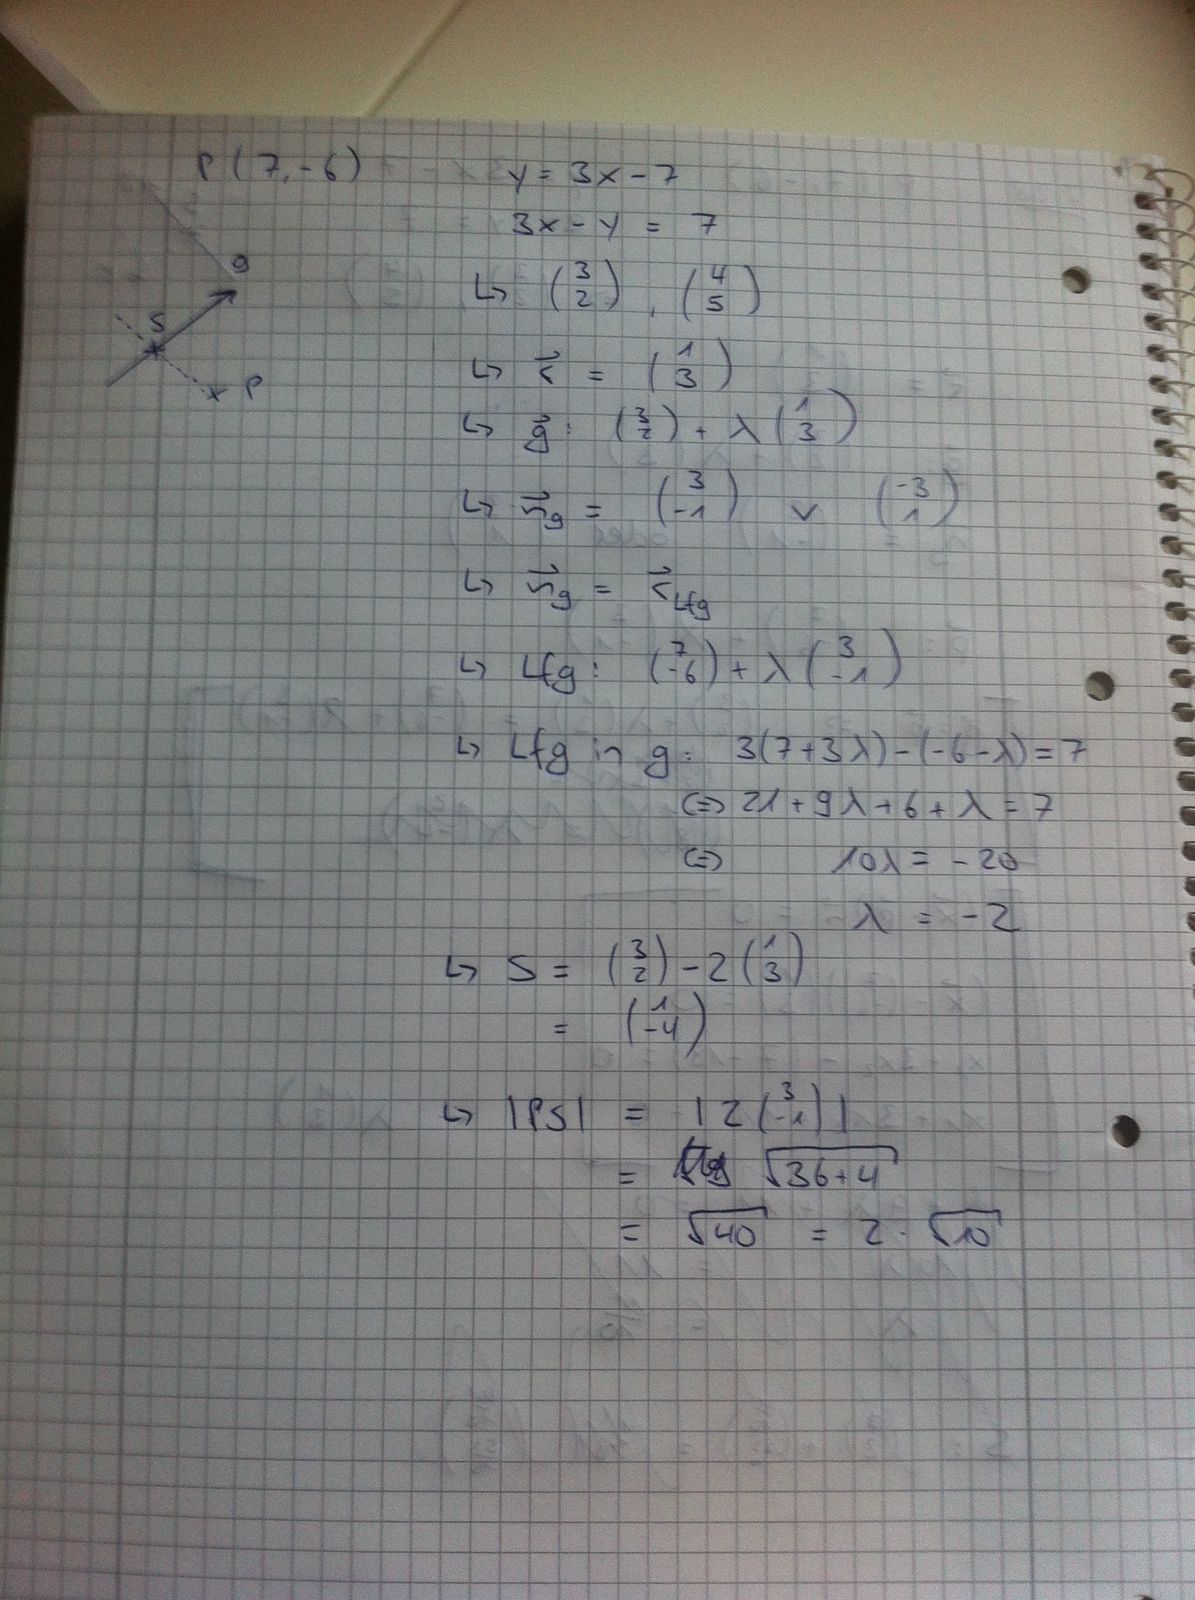 P (7,-6)
y = 3x - 7
3x - y = 7
g
S
P
↳ (3 2), (4 5)
↳ r⃗ = (1 3)
↳ g⃗: (3 2) + λ (1 3)
↳ n⃗g = (3 -1) v (-3 1)
↳ n⃗g = r⃗Lfg
↳ Lfg: (7 -6) + λ (3 -1)
↳ Lfg in g: 3(7+3λ)-(-6-λ) = 7
⇔ 21 + 9λ + 6 + λ = 7
⇔ 10λ = -20
λ = -2
↳ S = (3 2) - 2 (1 3)
= (1 -4)
↳ |PS| = |2 (3 -1)|
= √36+4
= √40 = 2 · √10